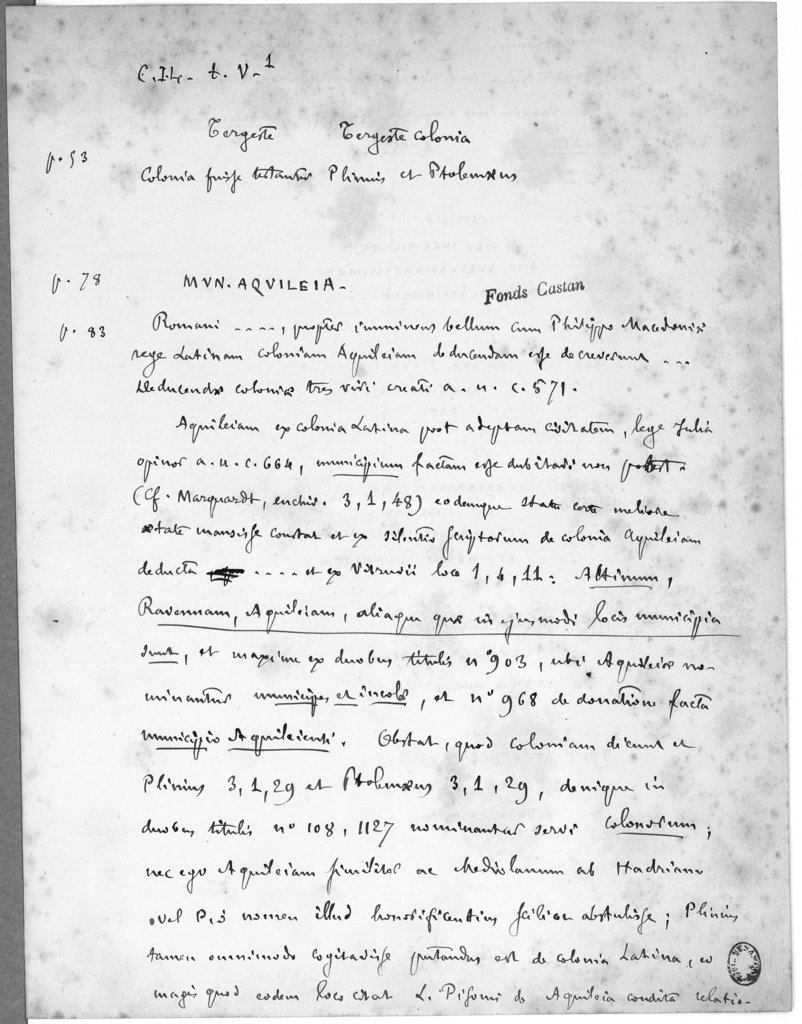 C.I.L. t. V-1
Tergeste Tergeste colonia
p. 53
Colonia fuisse testantur Plinius et Ptolemæus
p. 78 MVN. AQVILEIA-
Fonds Castan
p. 83 Romani ...., propter imminens bellum cum Philippo Macedoniæ
rege Latinam coloniam Aquileiam deducendam esse decreverunt ...
Deducendæ coloniæ tres viri creati a. u. c. 571.
Aquileiam ex colonia Latina post adeptam civitatem, lege Julia
opinor a. u. c. 664, municipium factam esse dubitari non potest.
(Cf. Marquardt, enchir. 3, 1, 48) eodemque statu meliore
ætate mansisse constat et ex silentio scriptorum de colonia Aquileiam
deducta .... et ex Vitruvii loco 1, 4, 11: Altinum,
Ravennam, Aquileiam, aliaque quæ in ejusmodi locis municipia
sunt, et maxime ex duobus titulis n° 903, ubi Aquileiæ no-
minantur municipes et incolæ, et n° 968 de donatione facta
municipio Aquileiensi. Obstat, quod coloniam dicunt et
Plinius 3, 1, 29 et Ptolemæus 3, 1, 29, denique in
duobus titulis n° 108, 1127 nominantur servi colonorum;
nec ego Aquileiam similiter ac Mediolanum ab Hadriano
vel Pio nomen illud honorificentius scilicet abstulisse; Plinius
tamen omnimodo cogitavisse putandus est de colonia Latina, eo
magis quod eodem loco citat L. Pisoni de Aquileia condita relatio-